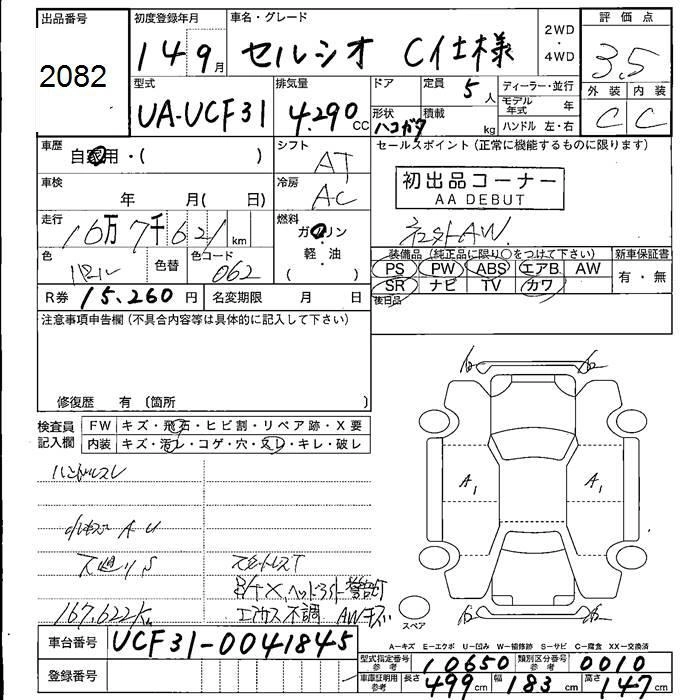 出品番号
2082
初度登録年月
14 9月
車名・グレード
セルシオ C仕様
2WD
・
4WD
評価点
3.5
外装 内装
C C
型式
UA-UCF31
排気量
4.290cc
ドア
形状
ハコガタ
定員
5人
積載
kg
ディーラー・並行
モデル年式 年
ハンドル 左・右
車歴
自家用・( )
シフト
AT
車検
年 月( 日)
冷房
AC
走行
16万7千621km
燃料
ガソリン
軽・油
( )
色
パール
色替
色コード
062
R券 15.260円
名変期限 月 日
セールスポイント(正常に機能するものに限ります)
初出品コーナー
AA DEBUT
AW.
装備品(純正品に限り○をつけて下さい)
PS PW ABS エアB. AW
SR ナビ TV カワ
新車保証書
有・無
後日品
注意事項申告欄(不具合内容等は具体的に記入して下さい)
修復歴 有 〔箇所 〕
検査員
記入欄
FW キズ・飛石・ヒビ割・リペア跡・X要
内装 キズ・汚レ・コゲ・穴・スレ・キレ・破レ
ハンドルスレ
A・U
下廻りS
ヘッドライト警告灯
167,622km
エアサス不調 AWキズ
A1
A1
スペア
A-キズ E-エクボ U-凹み W-補修跡 S-サビ C-腐食 XX-交換済
車台番号
UCF31-0041845
登録番号
型式指定番号 参考
10650
類別区分番号 参考
0010
車庫証明用 参考
長さ 499cm 幅 183cm 高さ 147cm